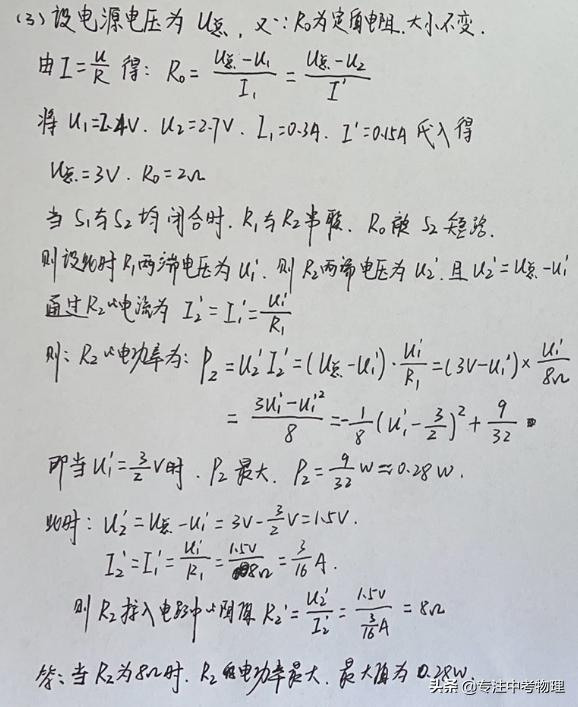 (3) 设电源电压为 U总, 又∵R₀为定值电阻.大小不变.
由 I=U/R 得: R₀ = (U总-U₁)/I₁ = (U总-U₂)/I'
将 U₁=2.4V. U₂=2.7V. I₁=0.3A. I'=0.15A 代入得
U总=3V. R₀=2Ω
当 S₁与S₂均闭合时. R₁与R₂串联. R₀被S₂短路.
则设此时R₁两端电压为U₁'. 则R₂两端电压为U₂'. 且U₂'=U总-U₁'
通过R₂的电流为 I₂'=I₁'=U₁'/R₁
则: R₂的电功率为: P₂=U₂'I₂'=(U总-U₁')·U₁'/R₁=(3V-U₁')×U₁'/8Ω
= (3U₁'-U₁'²)/8 = -1/8(U₁'-3/2)²+9/32
即当U₁'=3/2V时. P₂最大. P₂=9/32W≈0.28W.
此时: U₂'=U总-U₁'=3V-3/2V=1.5V.
I₂'=I₁'=U₁'/R₁=1.5V/8Ω=3/16A.
则R₂接入电路中的阻值R₂'=U₂'/I₂'=1.5V/(3/16A)=8Ω
答: 当R₂为8Ω时. R₂的电功率最大. 最大值为0.28W.
头条 @专注中考物理